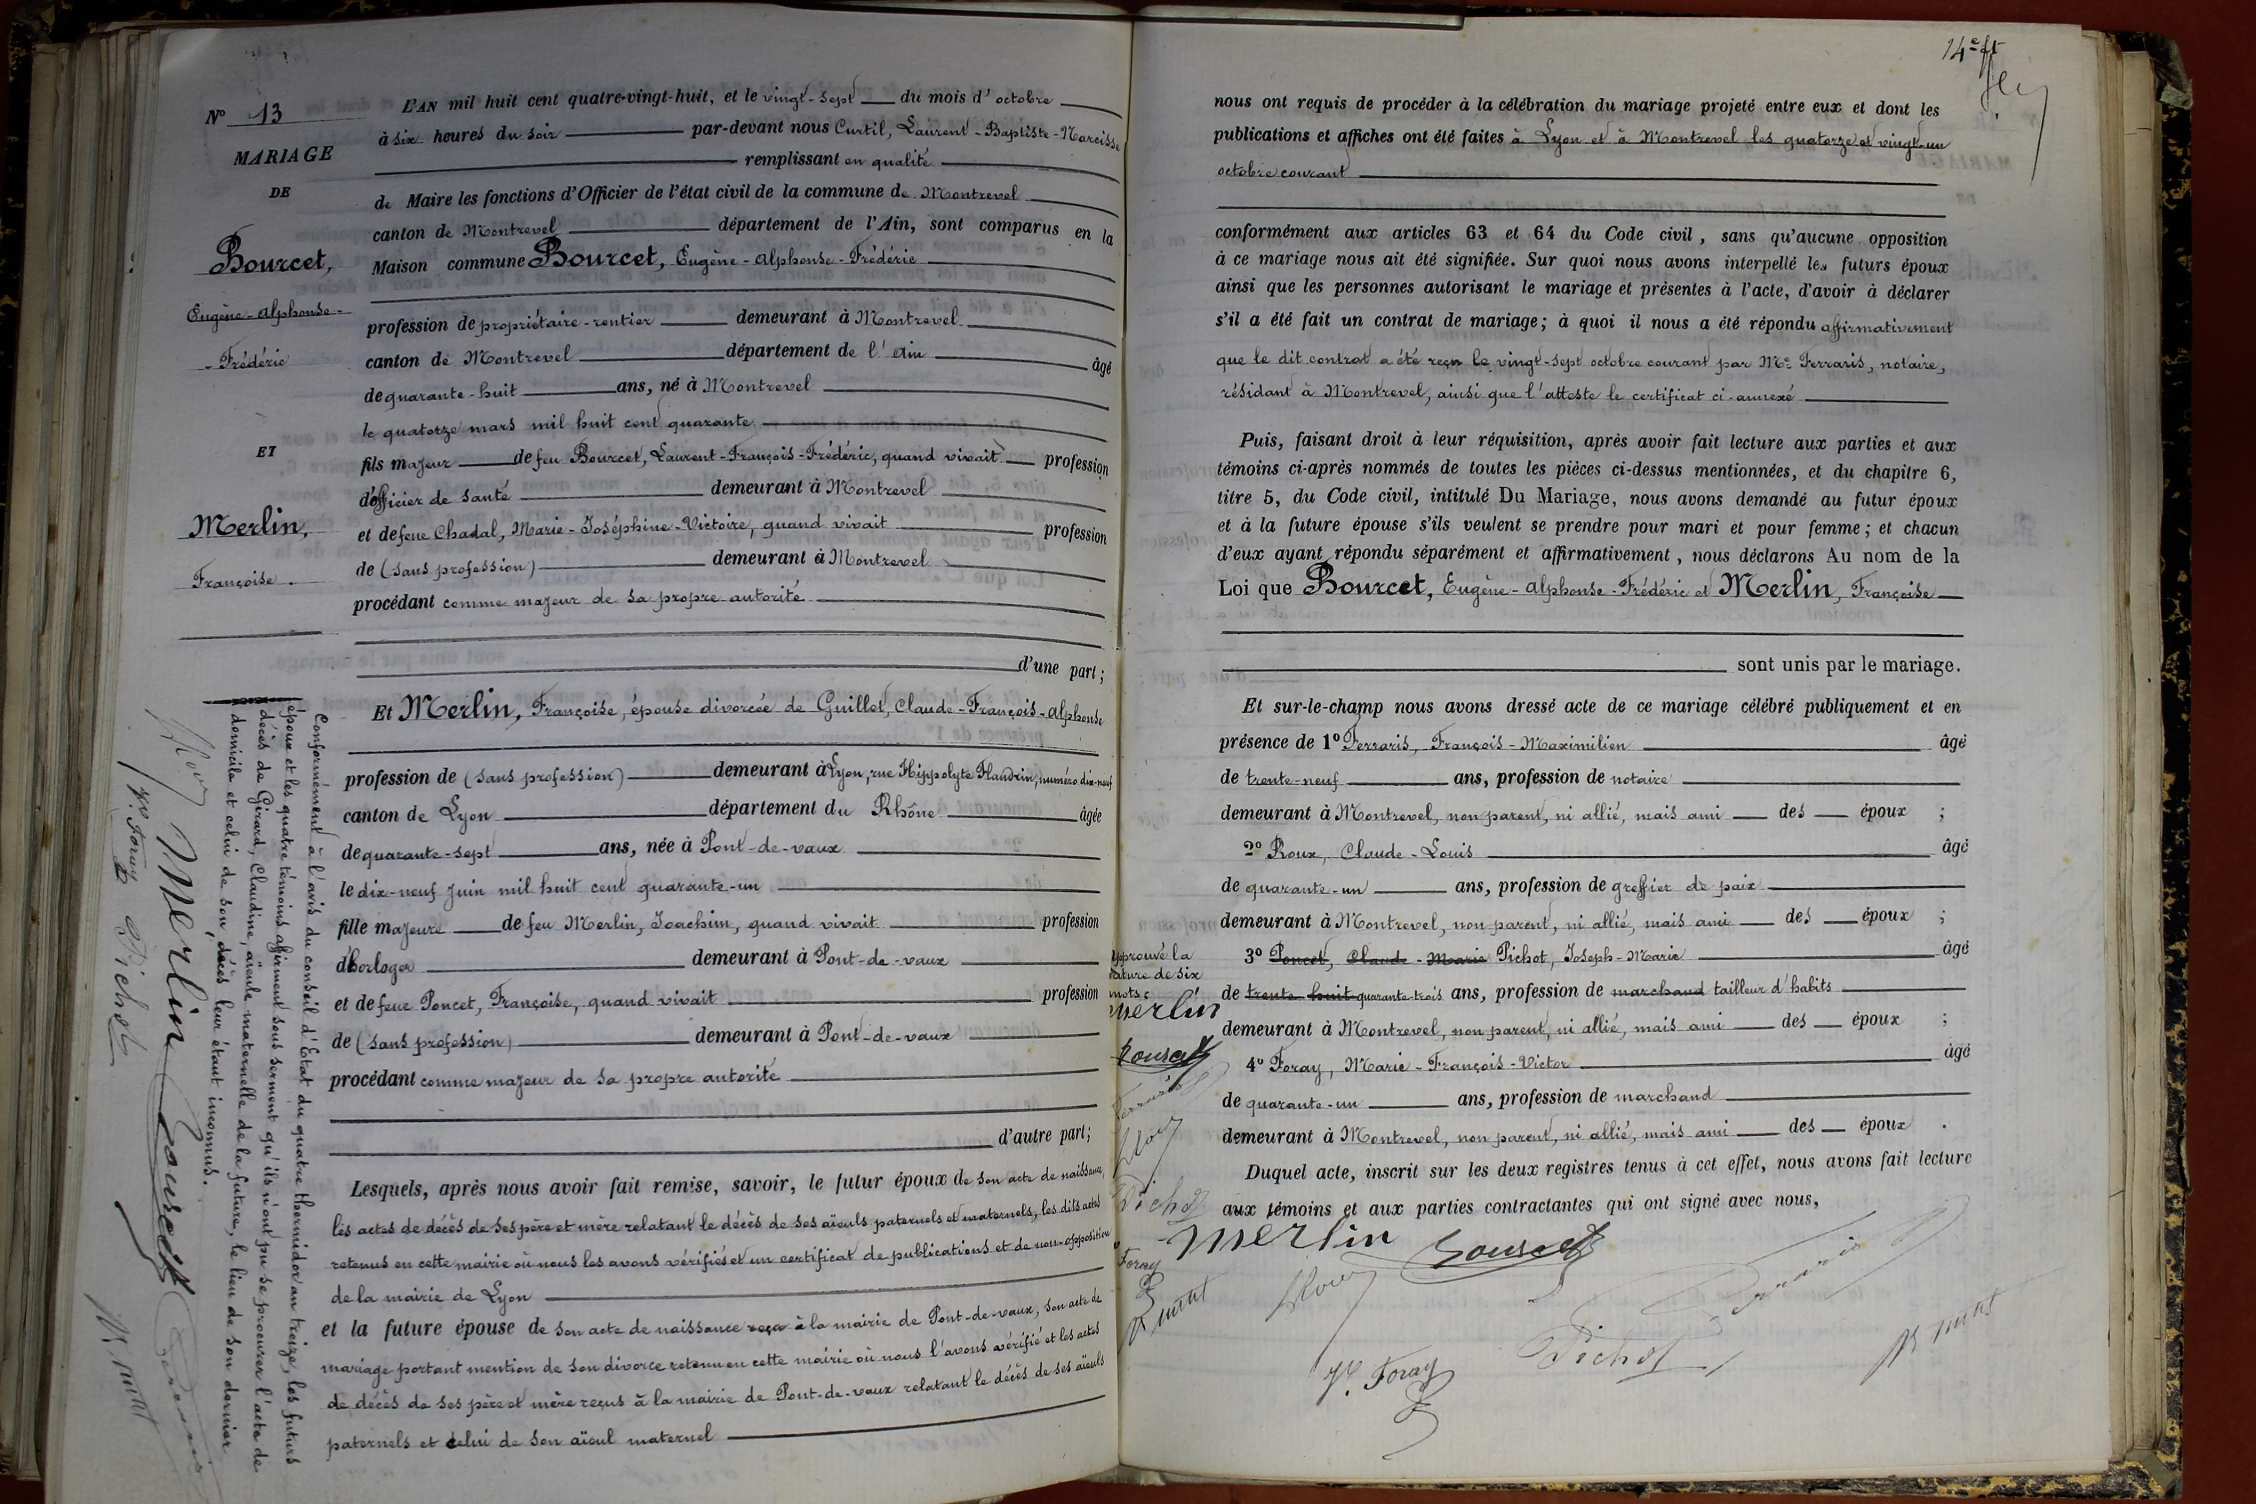 N° 13
MARIAGE
DE
Bourcet,
Eugène-Alphonse-
-Frédéric
ET
Merlin,
Françoise.
L'AN mil huit cent quatre-vingt-huit, et le vingt-sept du mois d'octobre
à six heures du soir par-devant nous Curtil, Laurent-Baptiste-Narcisse
remplissant en qualité
de Maire les fonctions d'Officier de l'état civil de la commune de Montrevel
canton de Montrevel département de l'Ain, sont comparus en la
Maison commune Bourcet, Eugène-Alphonse-Frédéric
profession de propriétaire-rentier demeurant à Montrevel
canton de Montrevel département de l'Ain âgé
de quarante-huit ans, né à Montrevel
le quatorze mars mil huit cent quarante
fils majeur de feu Bourcet, Laurent-François-Frédéric, quand vivait profession
d'officier de santé demeurant à Montrevel
et de feue Chadal, Marie-Joséphine-Victoire, quand vivait profession
de (sans profession) demeurant à Montrevel
procédant comme majeur de sa propre autorité
d'une part;
Et Merlin, Françoise, épouse divorcée de Guillet, Claude-François-Alphonse
profession de (sans profession) demeurant à Lyon, rue Hippolyte Flandrin, numéro dix-neuf
canton de Lyon département du Rhône âgée
de quarante-sept ans, née à Pont-de-vaux
le dix-neuf juin mil huit cent quarante-un
fille majeure de feu Merlin, Joachim, quand vivait profession
d'horloger demeurant à Pont-de-vaux
et de feue Poncet, Françoise, quand vivait profession
de (sans profession) demeurant à Pont-de-vaux
procédant comme majeur de sa propre autorité
d'autre part;
Lesquels, après nous avoir fait remise, savoir, le futur époux de son acte de naissance,
les actes de décès de ses père et mère relatant le décès de ses aïeuls paternels et maternels, les dits actes
retenus en cette mairie où nous les avons vérifiés et un certificat de publications et de non-opposition
de la mairie de Lyon
et la future épouse de son acte de naissance reçu à la mairie de Pont-de-vaux, son acte de
mariage portant mention de son divorce retenu en cette mairie où nous l'avons vérifié et les actes
de décès de ses père et mère reçus à la mairie de Pont-de-vaux relatant le décès de ses aïeuls
paternels et celui de son aïeul maternel
Conformément à l'avis du conseil d'Etat du quatre thermidor an treize, les futurs
époux et les quatre témoins affirment sous serment qu'ils n'ont pu se procurer l'acte de
décès de Girard, Claudine, aïeule maternelle de la future, le lieu de son dernier
domicile et celui de son décès leur étant inconnus.
Merlin Bourcet
Roux
Vr. Foray Pichot
14e ft
nous ont requis de procéder à la célébration du mariage projeté entre eux et dont les
publications et affiches ont été faites à Lyon et à Montrevel les quatorze et vingt-un
octobre courant
conformément aux articles 63 et 64 du Code civil, sans qu'aucune opposition
à ce mariage nous ait été signifiée. Sur quoi nous avons interpellé les futurs époux
ainsi que les personnes autorisant le mariage et présentes à l'acte, d'avoir à déclarer
s'il a été fait un contrat de mariage; à quoi il nous a été répondu affirmativement
que le dit contrat a été reçu le vingt-sept octobre courant par Me Ferraris, notaire,
résidant à Montrevel, ainsi que l'atteste le certificat ci-annexé
Puis, faisant droit à leur réquisition, après avoir fait lecture aux parties et aux
témoins ci-après nommés de toutes les pièces ci-dessus mentionnées, et du chapitre 6,
titre 5, du Code civil, intitulé Du Mariage, nous avons demandé au futur époux
et à la future épouse s'ils veulent se prendre pour mari et pour femme; et chacun
d'eux ayant répondu séparément et affirmativement, nous déclarons Au nom de la
Loi que Bourcet, Eugène-Alphonse-Frédéric et Merlin, Françoise
sont unis par le mariage.
Et sur-le-champ nous avons dressé acte de ce mariage célébré publiquement et en
présence de 1° Ferraris, François-Maximilien âgé
de trente-neuf ans, profession de notaire
demeurant à Montrevel, non parent, ni allié, mais ami des époux ;
2° Roux, Claude-Louis âgé
de quarante-un ans, profession de greffier de paix
demeurant à Montrevel, non parent, ni allié, mais ami des époux ;
3° Poncet, Claude-Marie Pichot, Joseph-Marie âgé
de trente-huit quarante-trois ans, profession de marchand tailleur d'habits
demeurant à Montrevel, non parent, ni allié, mais ami des époux ;
4° Foray, Marie-François-Victor âgé
de quarante-un ans, profession de marchand
demeurant à Montrevel, non parent, ni allié, mais ami des époux .
Duquel acte, inscrit sur les deux registres tenus à cet effet, nous avons fait lecture
aux témoins et aux parties contractantes qui ont signé avec nous,
Approuvé la
rature de six
mots:
Merlin
Bourcet
Ferraris
Roux
Pichot
Foray
Merlin Bourcet
Roux Ferraris
Vr. Foray Pichot